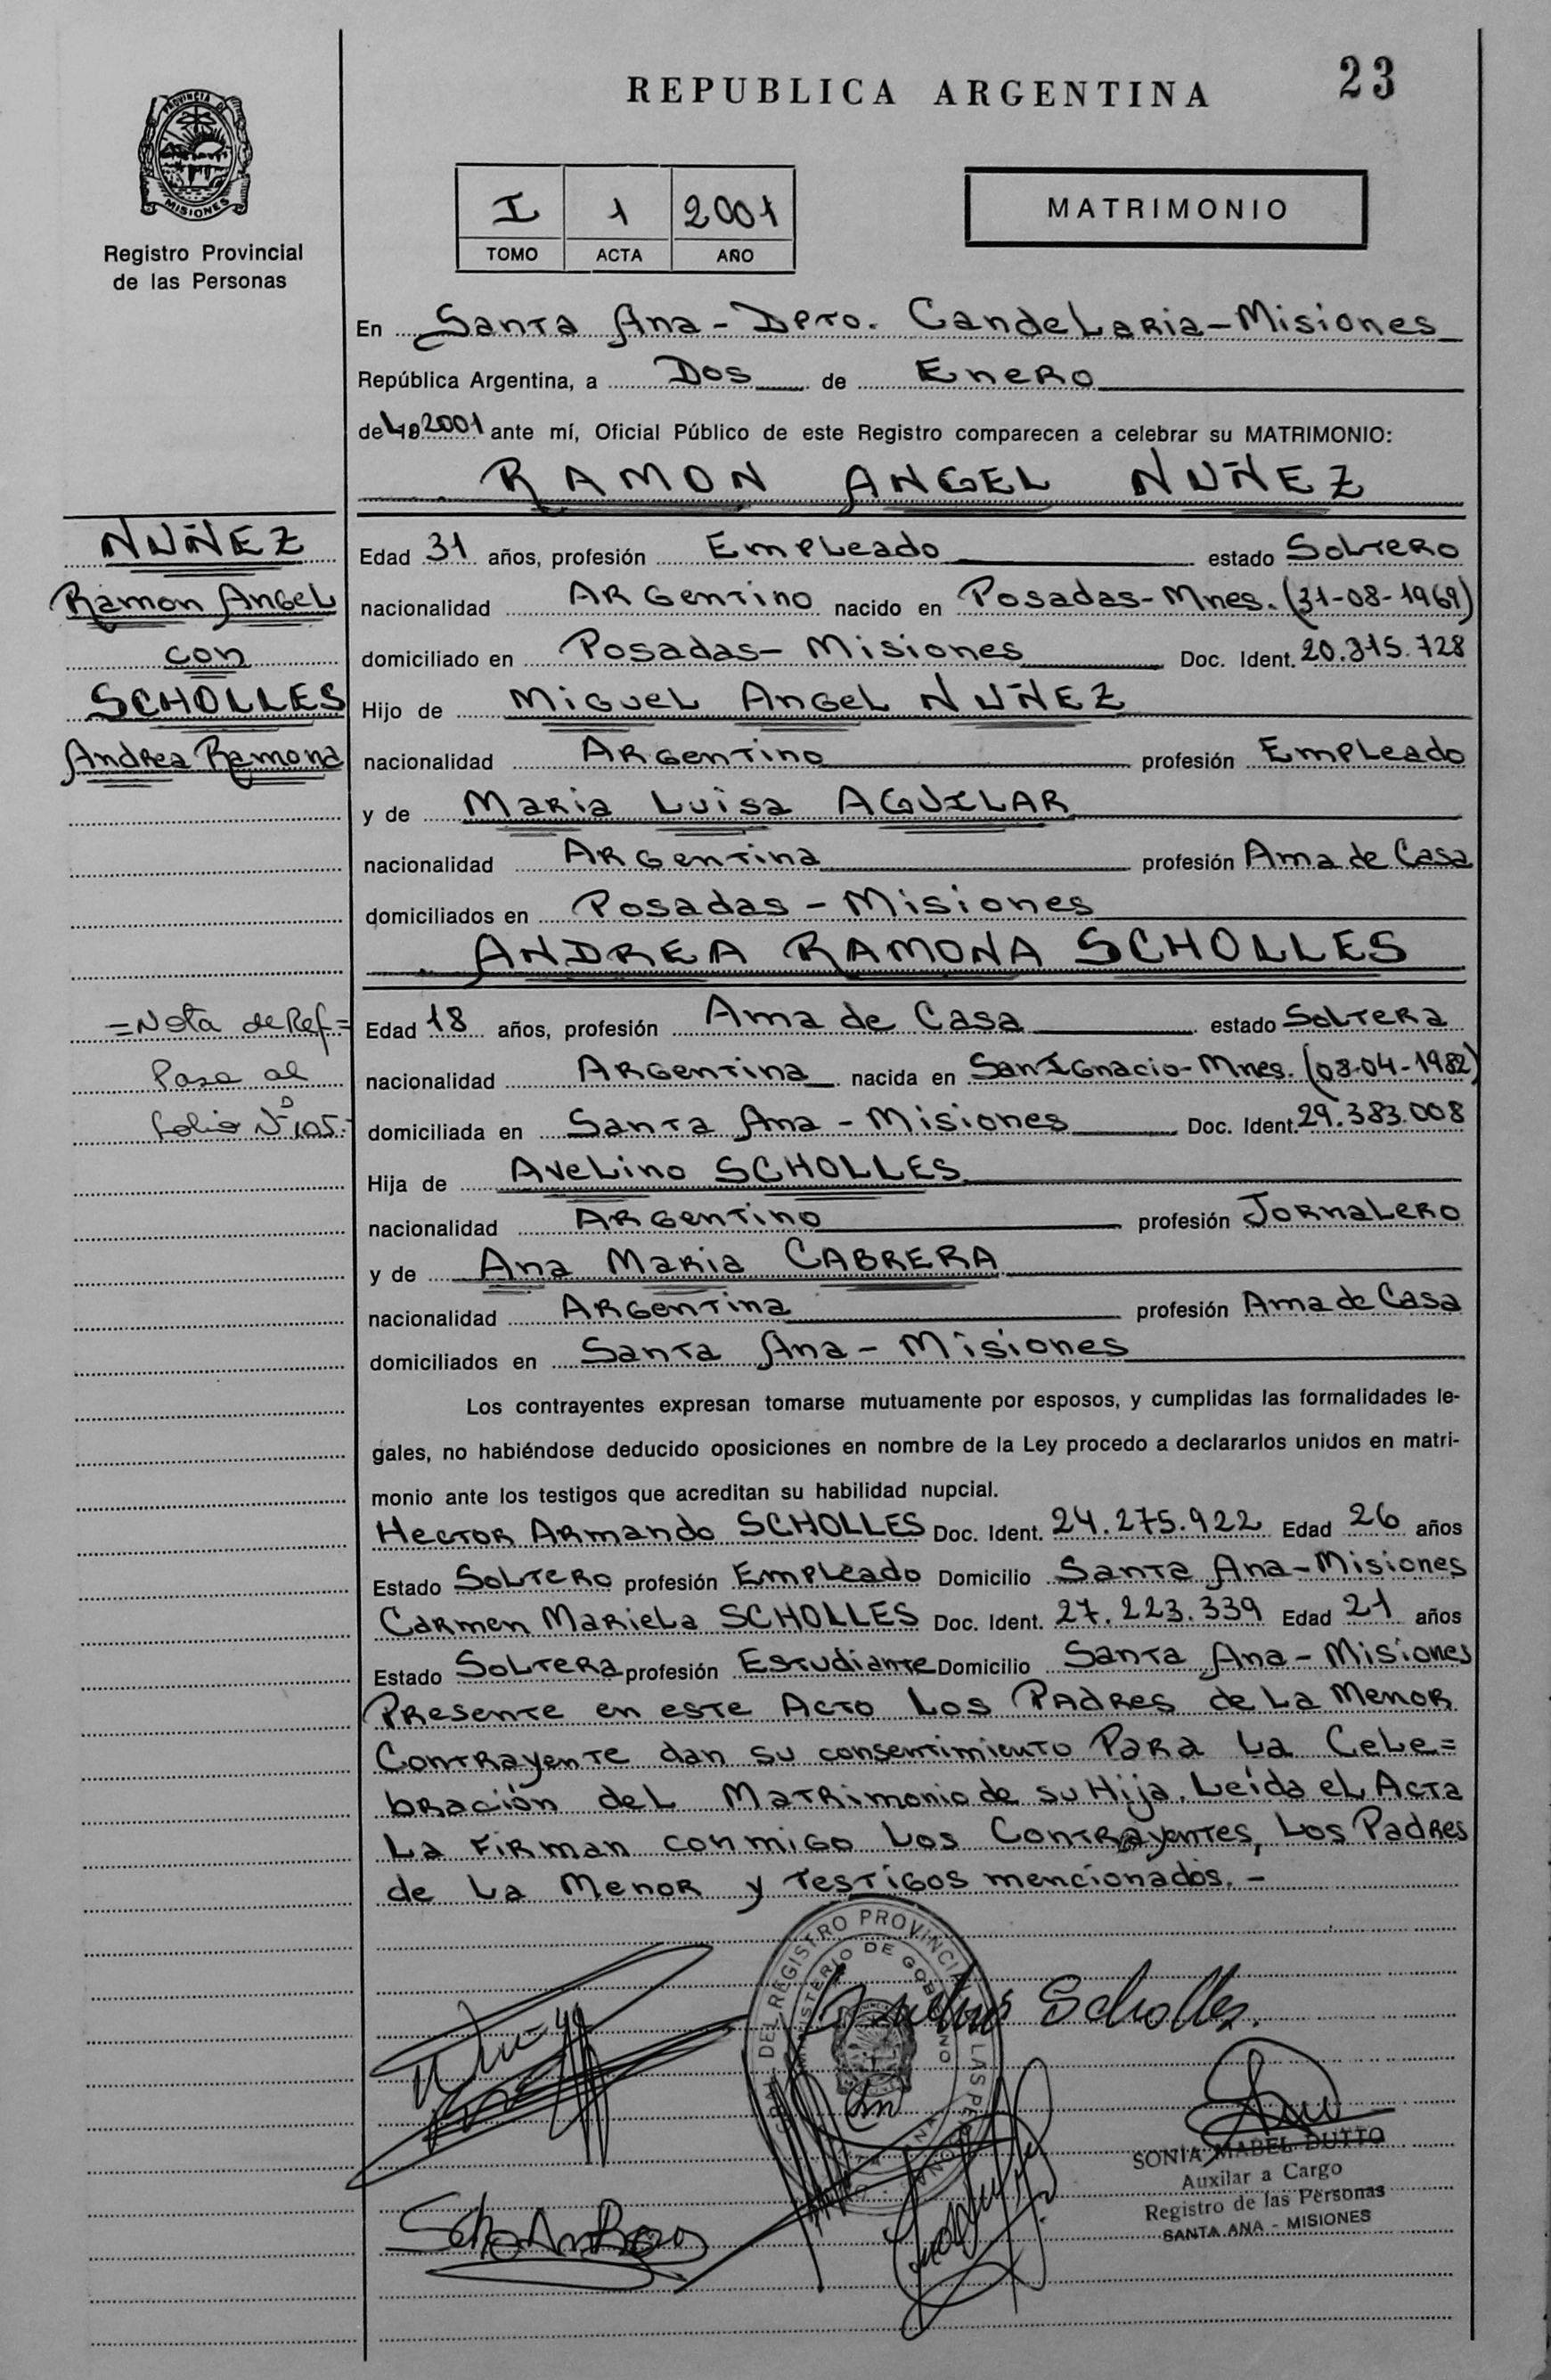 REPUBLICA ARGENTINA 23
PROVINCIA D
MISIONES
Registro Provincial
de las Personas
I 1 2001
TOMO ACTA AÑO
MATRIMONIO
En Santa Ana - Dpto. Candelaria - Misiones
República Argentina, a Dos de Enero
del 2001 ante mí, Oficial Público de este Registro comparecen a celebrar su MATRIMONIO:
RAMON ANGEL NUÑEZ
NUÑEZ
Ramon Angel
con
SCHOLLES
Andrea Ramona
Edad 31 años, profesión Empleado estado Soltero
nacionalidad Argentino nacido en Posadas-Mnes. (31-08-1969)
domiciliado en Posadas - Misiones Doc. Ident. 20.315.728
Hijo de Miguel Angel NUÑEZ
nacionalidad Argentino profesión Empleado
y de Maria Luisa AGUILAR
nacionalidad Argentina profesión Ama de Casa
domiciliados en Posadas - Misiones
ANDREA RAMONA SCHOLLES
=Nota de Ref=
Pasa al
folio Nº 105.-
Edad 18 años, profesión Ama de Casa estado Soltera
nacionalidad Argentina nacida en San Ignacio-Mnes. (03-04-1982)
domiciliada en Santa Ana - Misiones Doc. Ident. 29.383.008
Hija de Avelino SCHOLLES
nacionalidad Argentino profesión Jornalero
y de Ana Maria CABRERA
nacionalidad Argentina profesión Ama de Casa
domiciliados en Santa Ana - Misiones
Los contrayentes expresan tomarse mutuamente por esposos, y cumplidas las formalidades le-
gales, no habiéndose deducido oposiciones en nombre de la Ley procedo a declararlos unidos en matri-
monio ante los testigos que acreditan su habilidad nupcial.
Hector Armando SCHOLLES Doc. Ident. 24.275.922 Edad 26 años
Estado Soltero profesión Empleado Domicilio Santa Ana - Misiones
Carmen Mariela SCHOLLES Doc. Ident. 27.223.339 Edad 21 años
Estado Soltera profesión Estudiante Domicilio Santa Ana - Misiones
Presente en este Acto Los Padres de La Menor
Contrayente dan su consentimiento Para La Cele=
bración del Matrimonio de su Hija. Leída el Acta
La Firman conmigo Los Contrayentes, Los Padres
de La Menor y Testigos mencionados. -
DEL REGISTRO PROVINCIAL LAS PERSONAS
MINISTERIO DE GOBIERNO
Scholles.
SONIA MABEL DUTTO
Auxilar a Cargo
Registro de las Personas
SANTA ANA - MISIONES